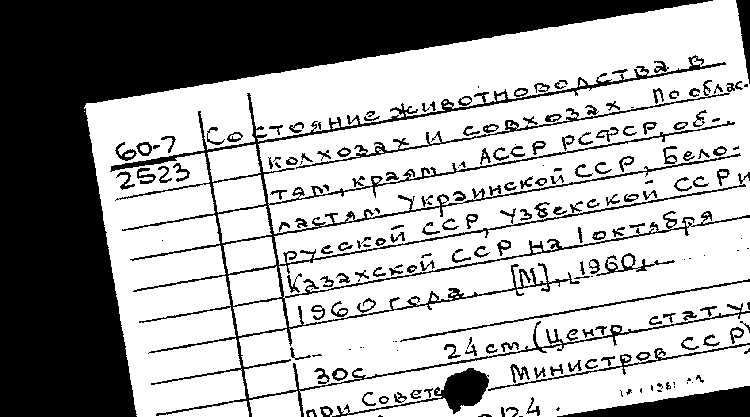 60-7
2523
Состояние животноводства в
колхозах и совхозах. По облас-
тям, краям и АССР РСФСР, об-
ластям Украинской ССР, Бело-
русской ССР, Узбекской ССР и
Казахской ССР на 1 октября
1960 года. [М.], 1960.
30с. 24 см. (Центр. стат. уп
при Совете Министров ССР)